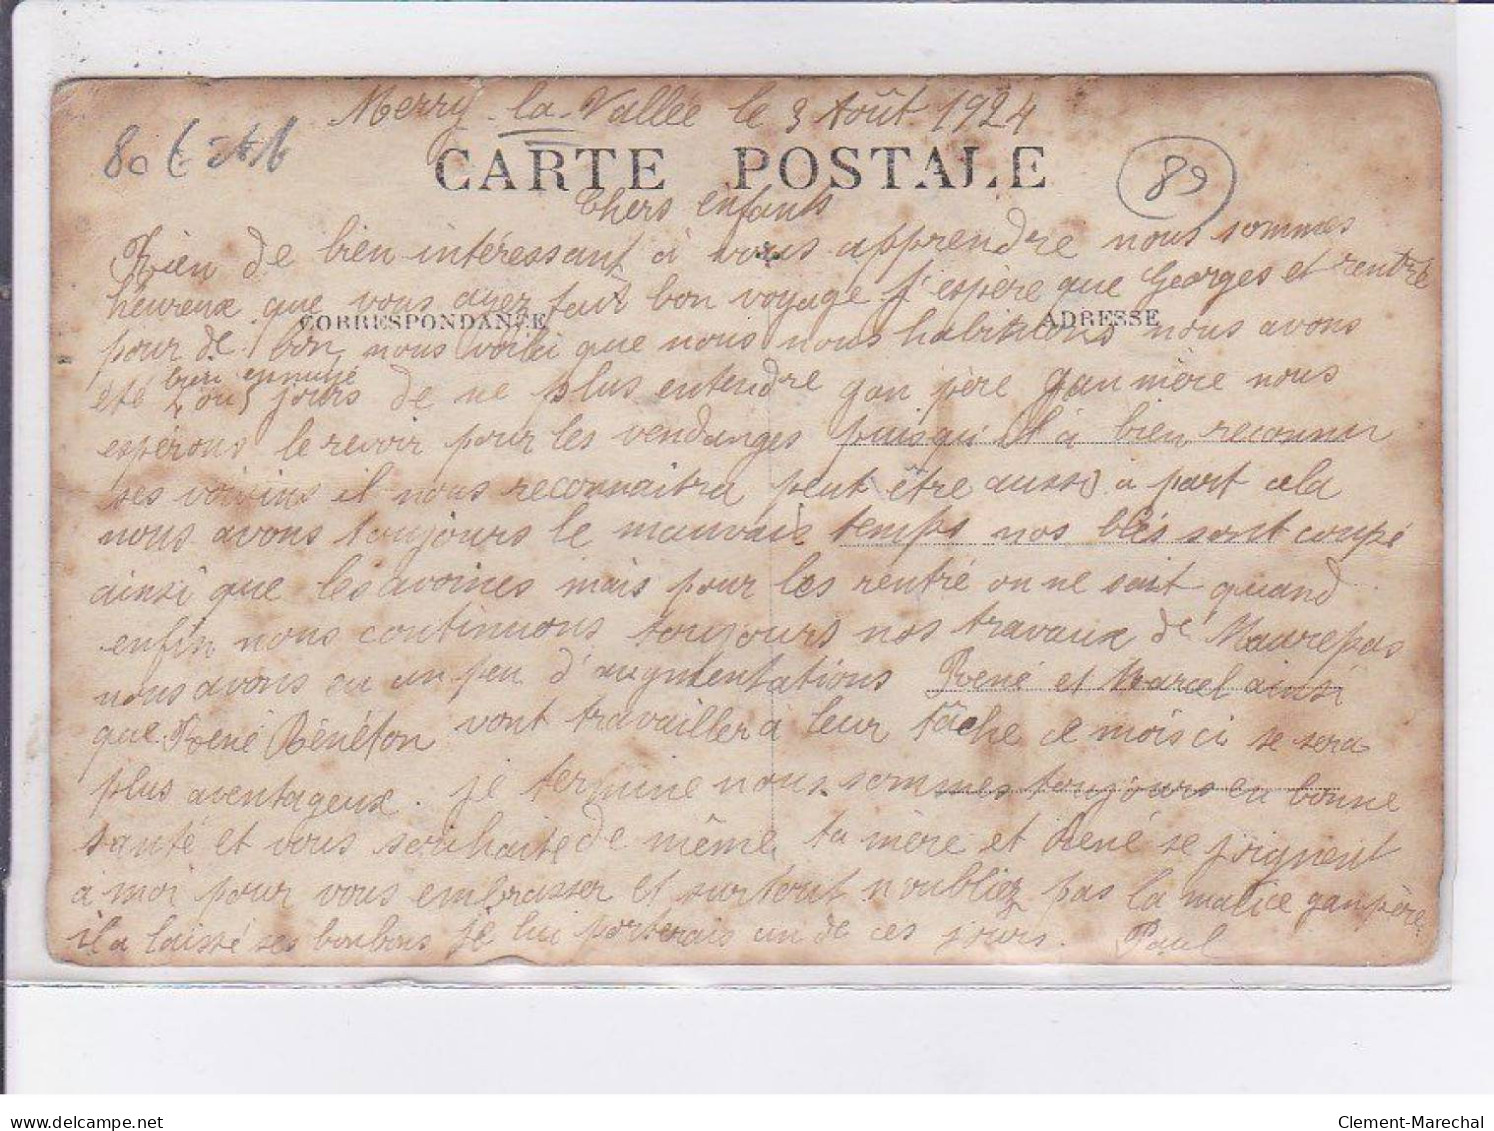 Merry-la-Vallée le 3 Août 1924
80 €
89
CARTE POSTALE
Chers enfants
Rien de bien intéressant à vous apprendre nous sommes
heureux que vous ayez fait bon voyage j'espère que Georges et rentré
CORRESPONDANCE
ADRESSE
pour de bon, nous voilà que nous nous habituons nous avons
bien ennuyé
été 4 ou 5 jours de ne plus entendre gan père gan mère nous
espérons le revoir pour les vendanges puisqu'il à bien reconnu
ses voisins il nous reconnaitra peut être aussi à part cela
nous avons toujours le mauvais temps nos blés sont coupé
ainsi que les avoines mais pour les rentré on ne sait quand
enfin nous continuons toujours nos travaux de Maurepas
nous avons eu un peu d'augmentations René et Marcel ainsi
que René Bénéton vont travailler à leur tâche ce mois ci se sera
plus aventageux. je termine nous sommes toujours en bonne
santé et vous souhaite de même, ta mère et René se joignent
a moi pour vous embrasser et surtout n'oubliez pas la malice ganpère
il a laissé ses bonbons je lui porterais un de ces jours. Paul
delcampe.net
Clement-Marechal